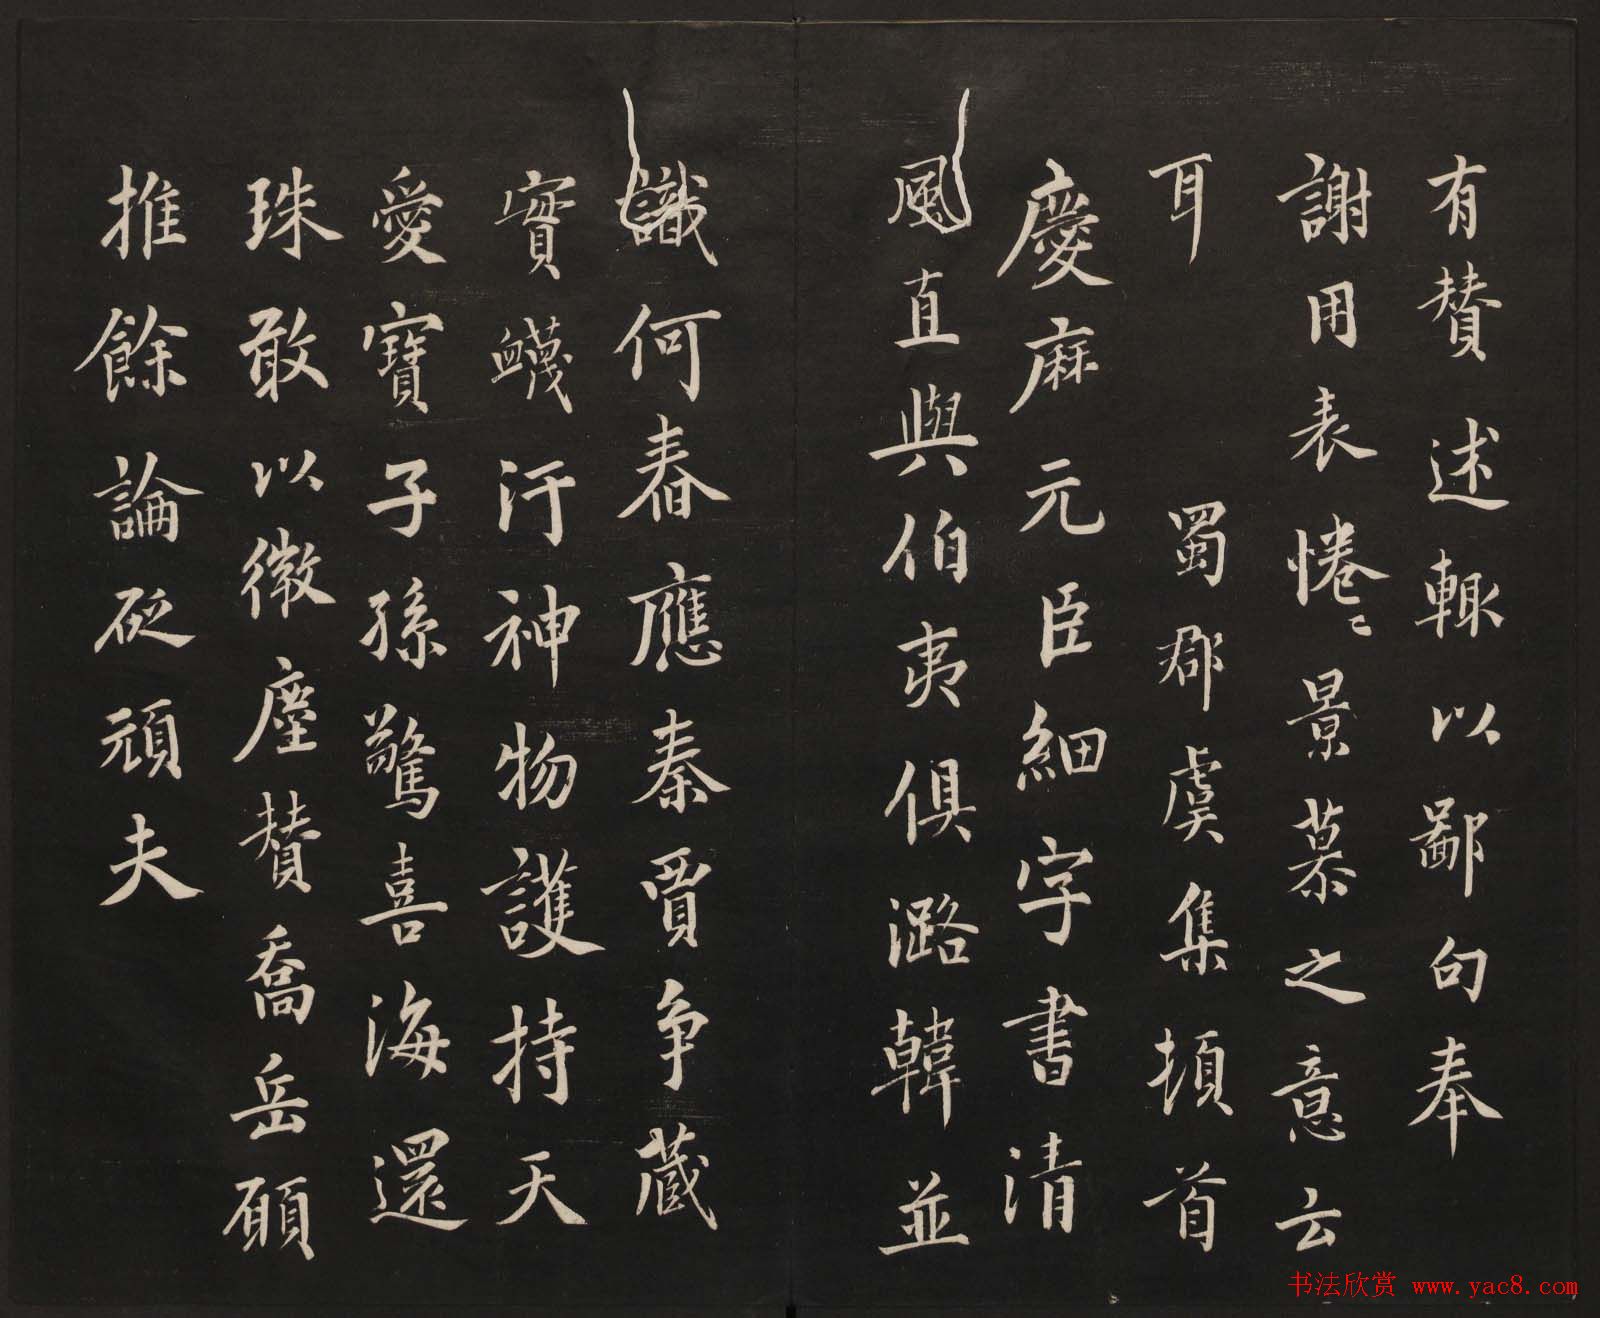 有賛述輙以鄙句奉
謝用表惓〻景慕之意云
耳 蜀郡虞集頓首
慶麻元臣細字書清
風直與伯夷俱潞韓並
識何春應秦賈争蔵
實衊汙神物護持天
愛寶子孫驚喜海還
珠敢以微塵賛喬岳願
推餘論砭頑夫
书法欣赏 www.yac8.com